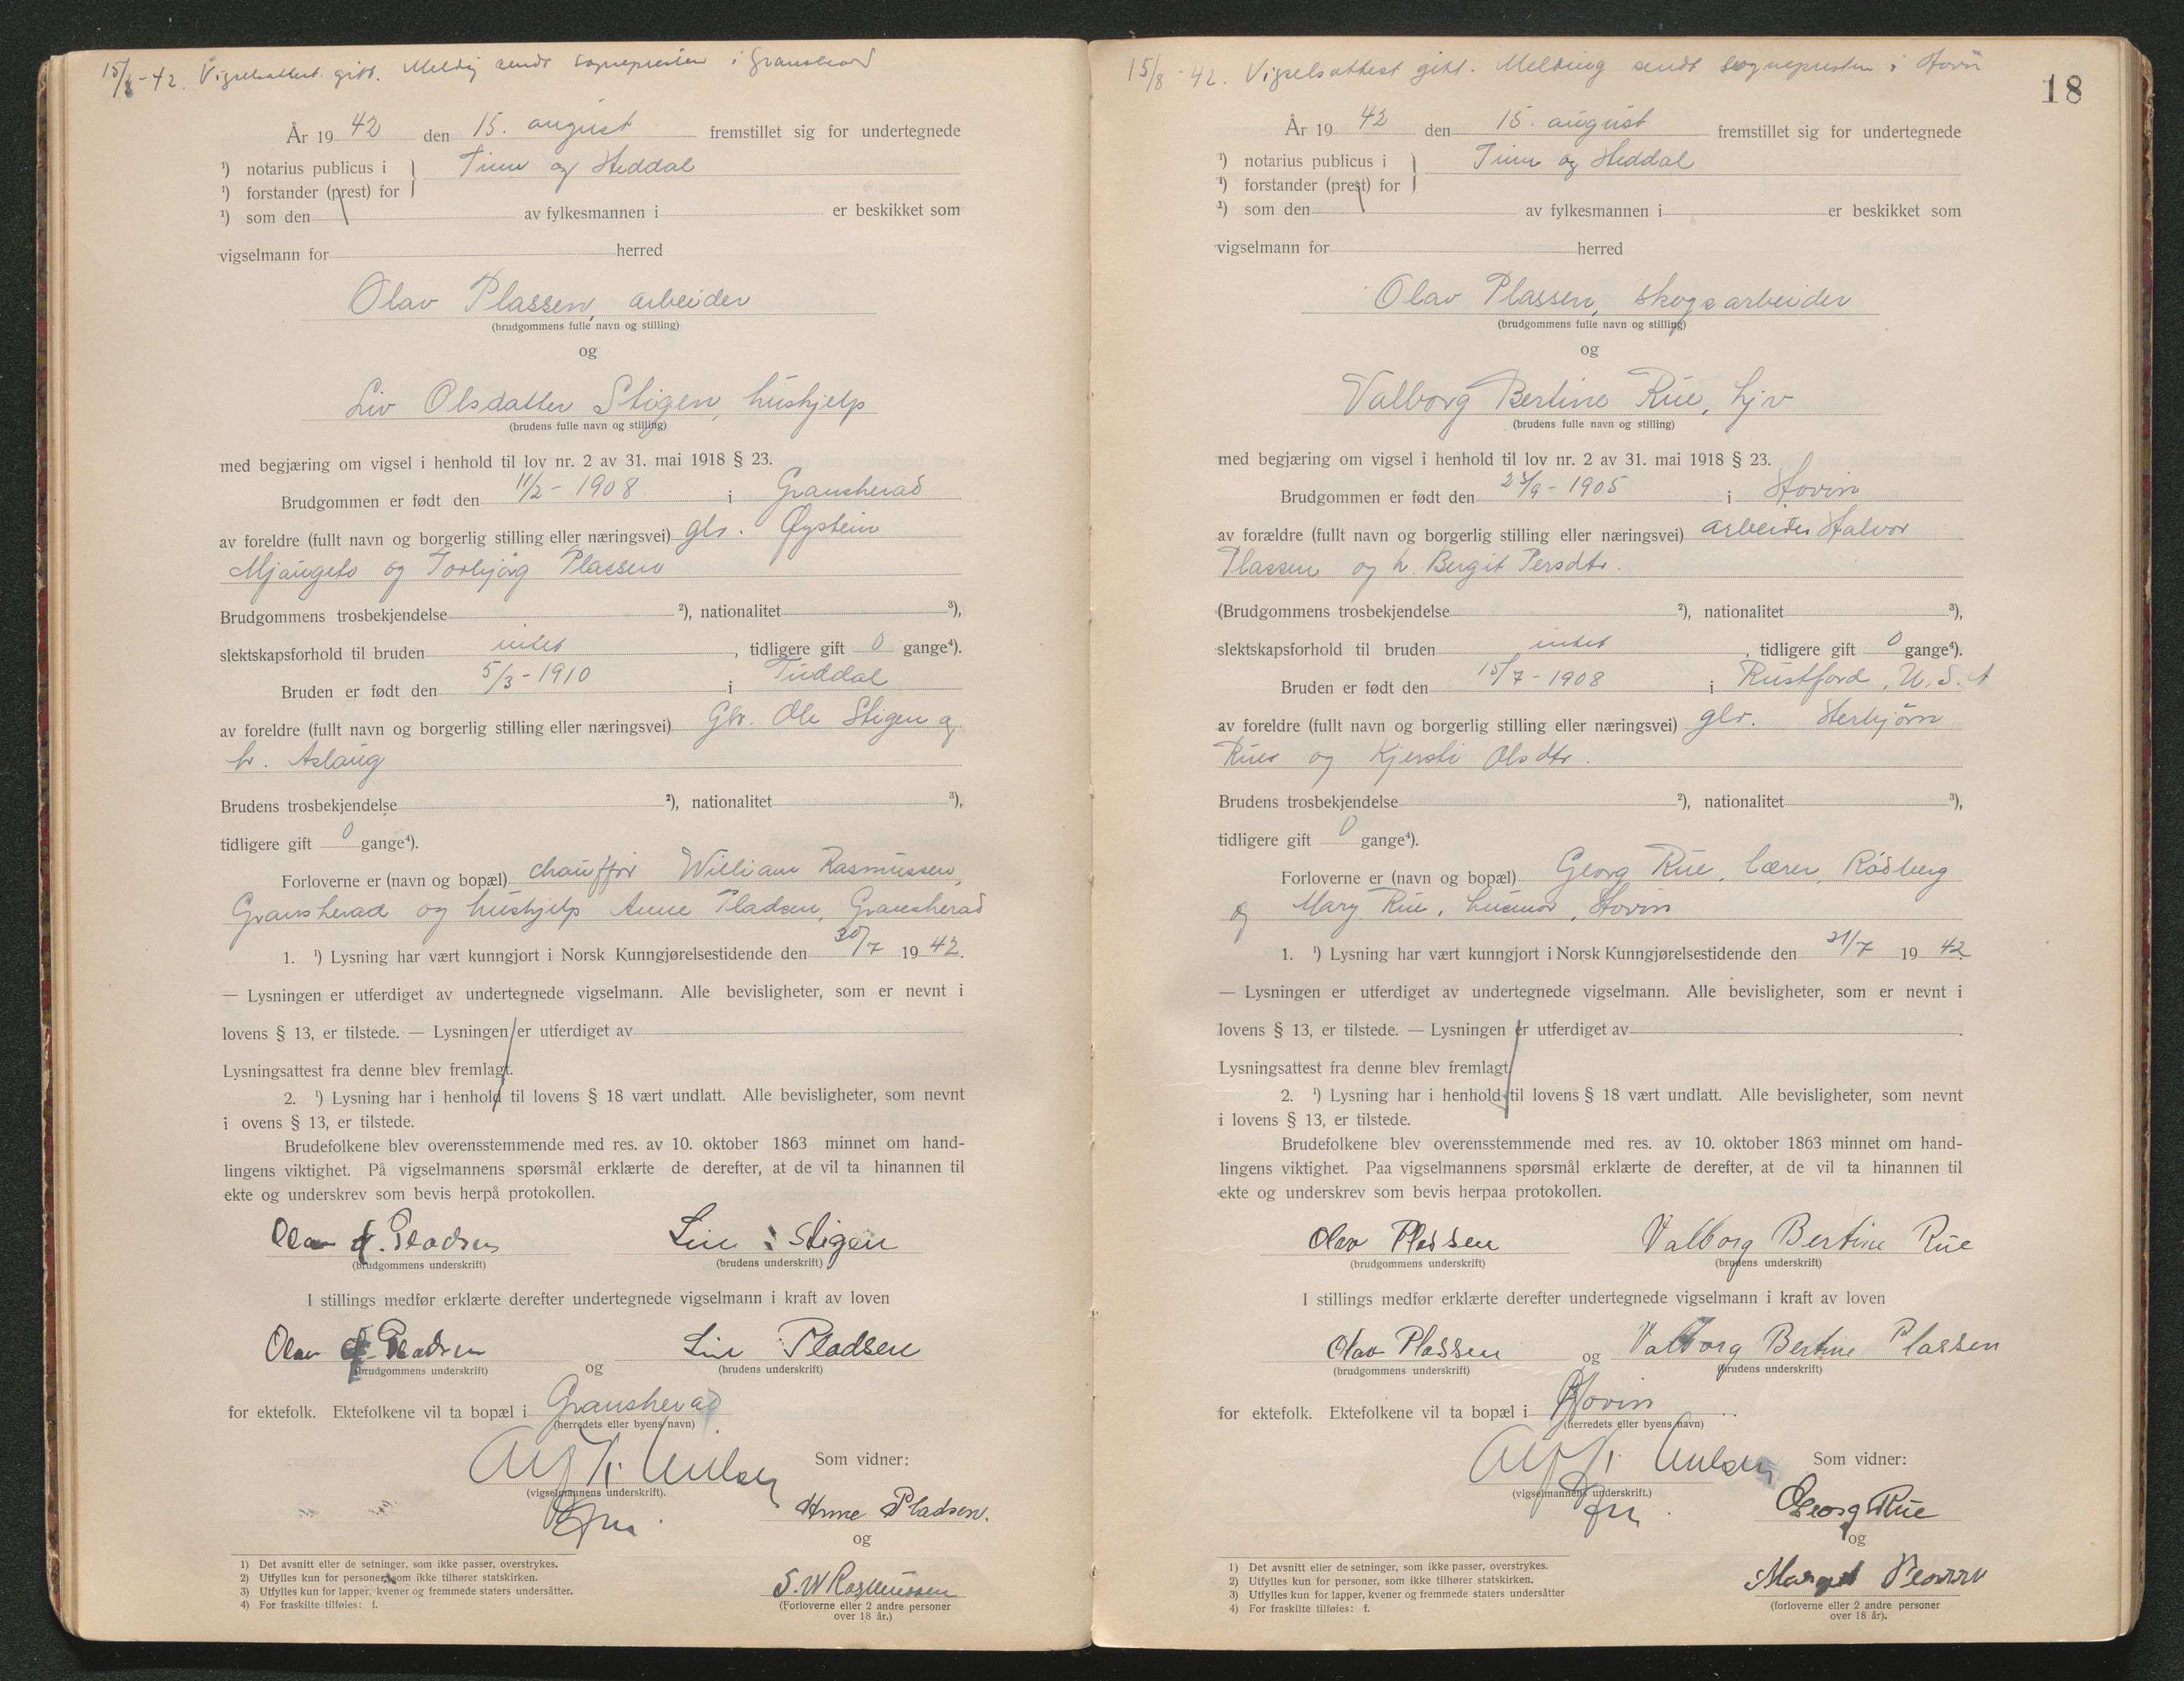 15/8-42. Vigselsattest gitt. Melding sendt sognepresten i Gransherad
År 19 42 den 15. august fremstillet sig for undertegnede
¹) notarius publicus i } Tinn og Heddal
¹) forstander (prest) for
¹) som den av fylkesmannen i er beskikket som
vigselmann for herred
Olav Plassen, arbeider
(brudgommens fulle navn og stilling)
og
Liv Olsdatter Stigen, hushjelp
(brudens fulle navn og stilling)
med begjæring om vigsel i henhold til lov nr. 2 av 31. mai 1918 § 23.
Brudgommen er født den 11/2 - 1908 i Gransherad
av foreldre (fullt navn og borgerlig stilling eller næringsvei) gbr. Øystein
Mjaugeto og Torbjørg Plassen
Brudgommens trosbekjendelse ²), nationalitet ³),
slektskapsforhold til bruden intet, tidligere gift 0 gange⁴).
Bruden er født den 5/3 - 1910 i Tuddal
av foreldre (fullt navn og borgerlig stilling eller næringsvei) Gbr. Ole Stigen og
h. Aslaug
Brudens trosbekjendelse ²), nationalitet ³),
tidligere gift 0 gange⁴).
Forloverne er (navn og bopæl) chauffør William Rasmussen,
Gransherad og hushjelp Anne Pladsen, Gransherad
1. ¹) Lysning har vært kunngjort i Norsk Kunngjørelsestidende den 30/7 19 42.
— Lysningen er utferdiget av undertegnede vigselmann. Alle bevisligheter, som er nevnt i
lovens § 13, er tilstede. — Lysningen er utferdiget av
Lysningsattest fra denne blev fremlagt.
2. ¹) Lysning har i henhold til lovens § 18 vært undlatt. Alle bevisligheter, som nevnt
i ovens § 13, er tilstede.
Brudefolkene blev overensstemmende med res. av 10. oktober 1863 minnet om hand-
lingens viktighet. På vigselmannens spørsmål erklærte de derefter, at de vil ta hinannen til
ekte og underskrev som bevis herpå protokollen.
Olav Ø. Pladsen Liv Stigen
(brudgommens underskrift) (brudens underskrift)
I stillings medfør erklærte derefter undertegnede vigselmann i kraft av loven
Olav Ø. Pladsen og Liv Pladsen
(brudgommens underskrift) (brudens underskrift)
for ektefolk. Ektefolkene vil ta bopæl i Gransherad
(herredets eller byens navn)
Som vidner:
(vigselmannens underskrift).
Anne Pladsen.
og
S. W Rasmussen
(Forloverne eller 2 andre personer
over 18 år.)
1) Det avsnitt eller de setninger, som ikke passer, overstrykes.
2) Utfylles kun for personer, som ikke tilhører statskirken.
3) Utfylles kun for lapper, kvener og fremmede staters undersåtter.
4) For fraskilte tilføies: f.
15/8 - 42. Vigselsattest gitt. Melding sendt sognepresten i Hovin
18
År 19 42 den 15. august fremstillet sig for undertegnede
¹) notarius publicus i } Tinn og Heddal
¹) forstander (prest) for
¹) som den av fylkesmannen i er beskikket som
vigselmann for herred
Olav Plassen, skogsarbeider
(brudgommens fulle navn og stilling)
og
Valborg Bertine Rue, hjv
(brudens fulle navn og stilling)
med begjæring om vigsel i henhold til lov nr. 2 av 31. mai 1918 § 23.
Brudgommen er født den 25/9 - 1905 i Hovin
av forældre (fullt navn og borgerlig stilling eller næringsvei) arbeider Halvor
Plassen og h. Bergit Persdtr.
(Brudgommens trosbekjendelse ²), nationalitet ³),
slektskapsforhold til bruden intet, tidligere gift 0 gange⁴).
Bruden er født den 15/7 - 1908 i Rustford, U.S.A
av foreldre (fullt navn og borgerlig stilling eller næringsvei) gbr. Herbjørn
Rue og Kjersti Olsdtr.
Brudens trosbekjendelse ²), nationalitet ³),
tidligere gift 0 gange⁴).
Forloverne er (navn og bopæl) Georg Rue, lærer, Rødberg
og Mary Rue, husmor, Hovin
1. ¹) Lysning har vært kunngjort i Norsk Kunngjørelsestidende den 31/7 19 42
— Lysningen er utferdiget av undertegnede vigselmann. Alle bevisligheter, som er nevnt i
lovens § 13, er tilstede. — Lysningen er utferdiget av
Lysningsattest fra denne blev fremlagt.
2. ¹) Lysning har i henhold til lovens § 18 vært undlatt. Alle bevisligheter, som nevnt
i lovens § 13, er tilstede.
Brudefolkene blev overensstemmende med res. av 10. oktober 1863 minnet om hand-
lingens viktighet. Paa vigselmannens spørsmål erklærte de derefter, at de vil ta hinannen til
ekte og underskrev som bevis herpaa protokollen.
Olav Plassen Valborg Bertine Rue
(brudgommens underskrift) (brudens underskrift)
I stillings medfør erklærte derefter undertegnede vigselmann i kraft av loven
Olav Plassen og Valborg Bertine Plassen
(brudgommens underskrift) (brudens underskrift)
for ektefolk. Ektefolkene vil ta bopæl i Hovin
(herredets eller byens navn)
Som vidner:
(vigselmannens underskrift.)
Georg Rue
og
(forloverne eller 2 andre personer
over 18 år).
1) Det avsnitt eller de setninger, som ikke passer, overstrykes.
2) Utfylles kun for personer, som ikke tilhører statskirken.
3) Utfylles kun for lapper, kvener og fremmede staters undersåtter
4) For fraskilte tilføies: f.